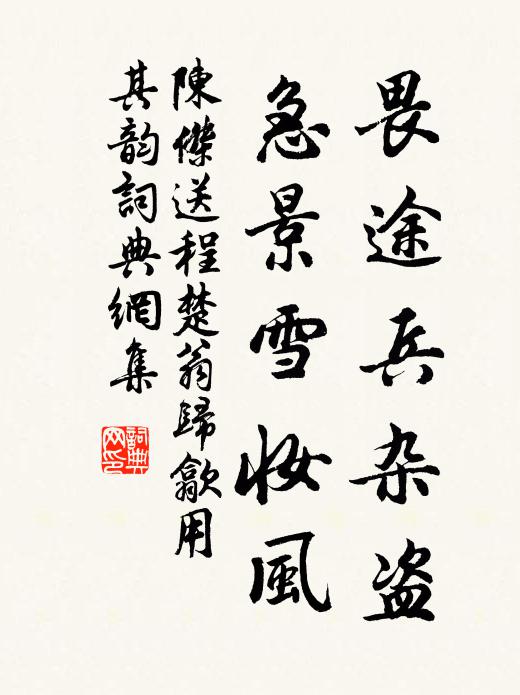 畏途兵杂盗
急景雪妆風
陳傑送程楚翁歸歙用
其韵詞典網集
詞典
网印